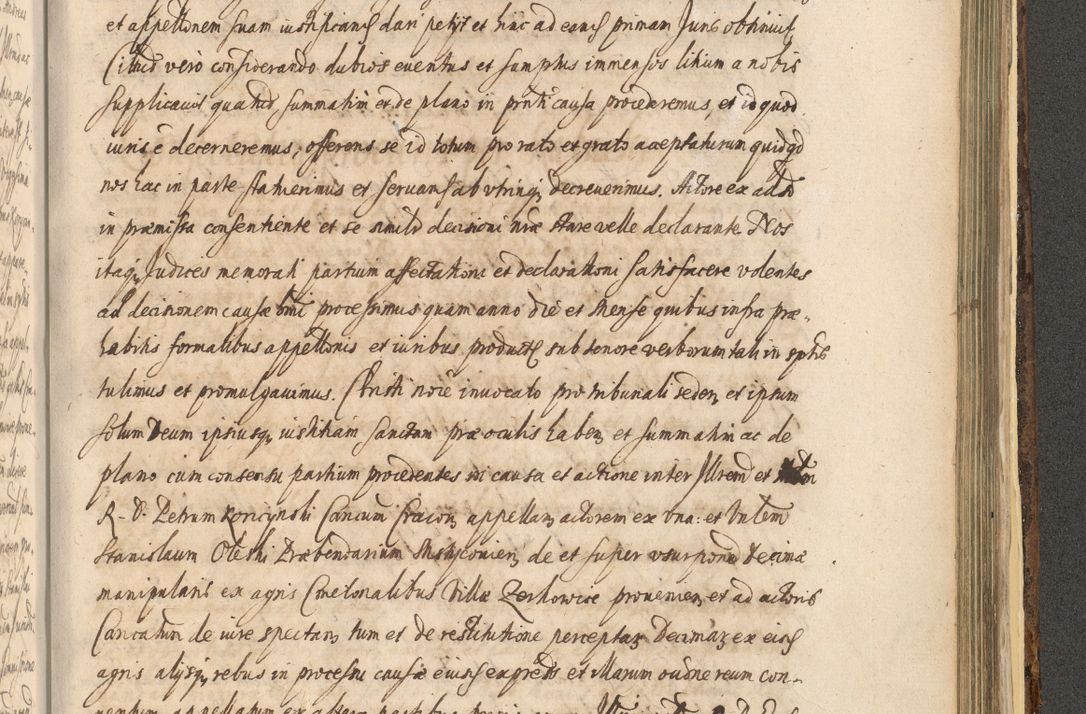 et appellonem suam iustificanẽ dari petyt et hinc ad eanđ primam Juris obtinuit,
Citus vero considerando dubios euentus et sumptus immensos litium a nobis
supplicauit quatus summatim et de plano in pnti causa procederemus, et id quod
iuris ẽ decerneremus, offerens se id totum pro rato et grato acceptaturum quidqd
nos hac in parte statuerimus et seruans ab vtrinq decreuerimus. Actore ex adso
in præmissa consentiente et se similr decisioni nræ stare velle declarante Nos
itaq Judices memorati partium affectationi et declarationi satisfacere volentes
ad decisionem causæ hmoi processimus quam anno die et mense quibus infra præ-
habitis formalibus appellonis et iuribus productis sub tenore verborum tali in sptis
tulimus et promulgauimus. Christi noie inuocato pro tribunali seden et ipsum
solum Deum ipsiusq iustitiam sanctam præ oculis haben et summatim ac de
plano cum consensu partium procedentes in causa et actione inter Illrem et
R. D. Petrum Koricynski Cancum Cracoń appellań actorem ex vna: et Vntem
Stanislaum Oleski Præbendarium Msticonień de et super vsurpone Decimæ
manipularis ex agris Cmetonalibus Villæ Zerkowice prouenien et ad actoris
Cancatum de iure spectań tum et de restitutione perceptaz Decimaz ex eisđ
agris alysq rebus in processu causæ eiusđ expressis et illarum oudne reum con-